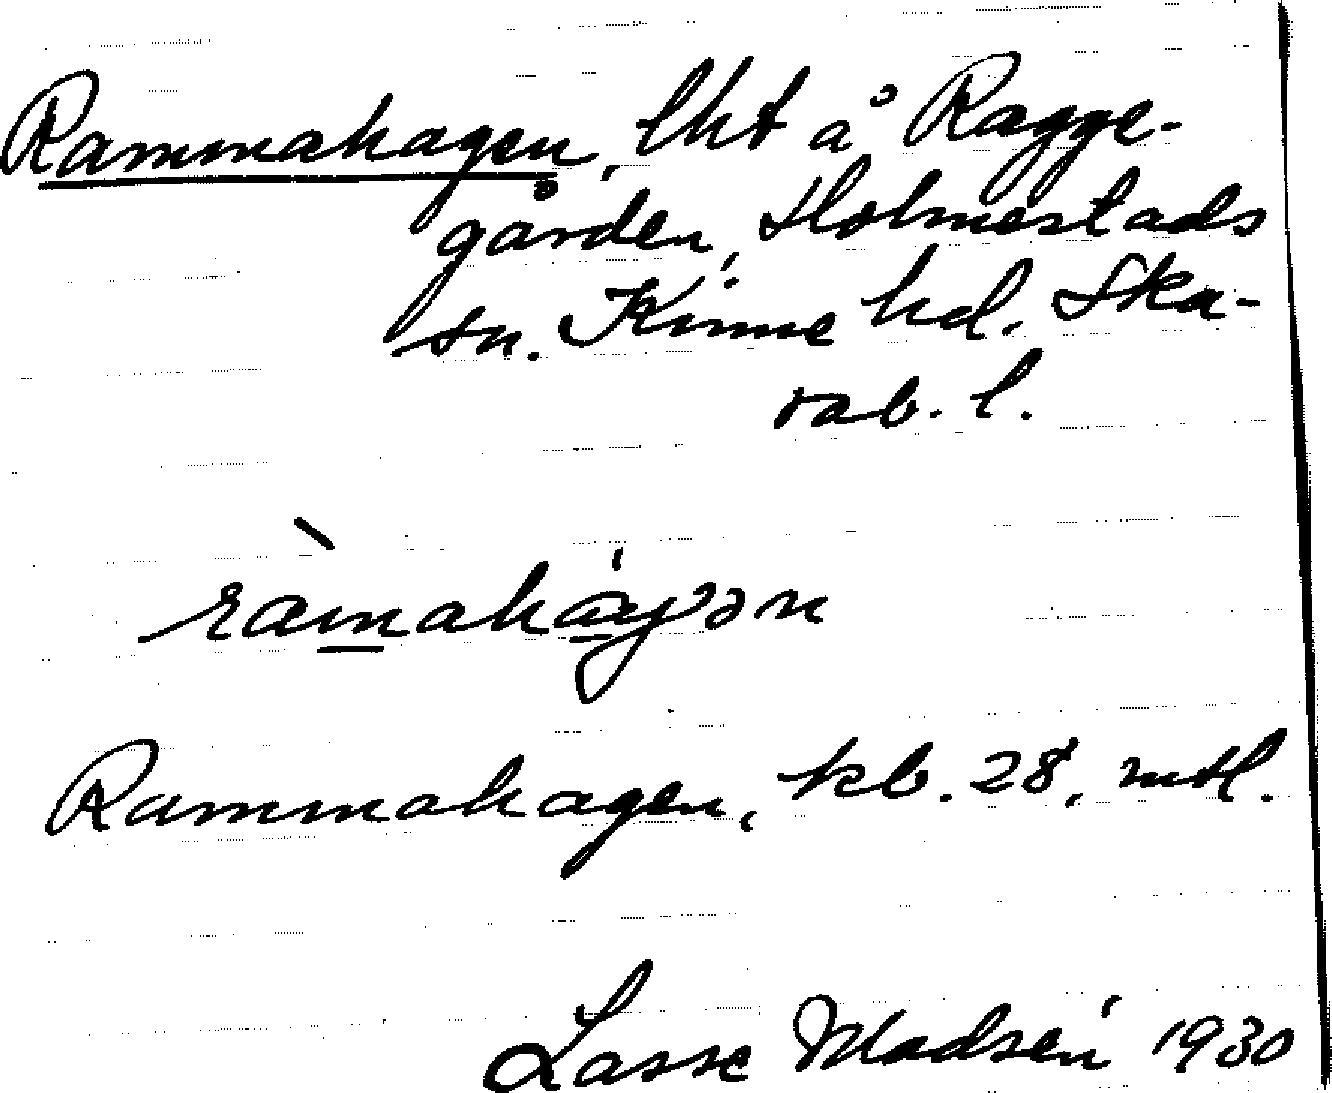 Rammahagen, lht å Ragge-
gården, Holmestads
sn. Kinne hd. Ska-
rab. l.
ràmahá̱gən
Rammahagen, kb. 28, mtl.
Lasse Madsén 1930